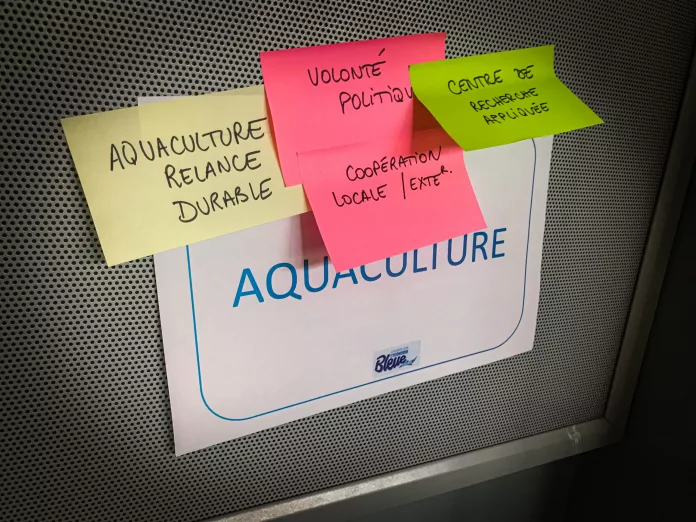 AQUACULTURE
RELANCE
DURABLE
VOLONTÉ
POLITIQU
CENTRE DE
RECHERCHE
APPLIQUÉE
COOPÉRATION
LOCALE / EXTER.
AQUACULTURE
Bleue